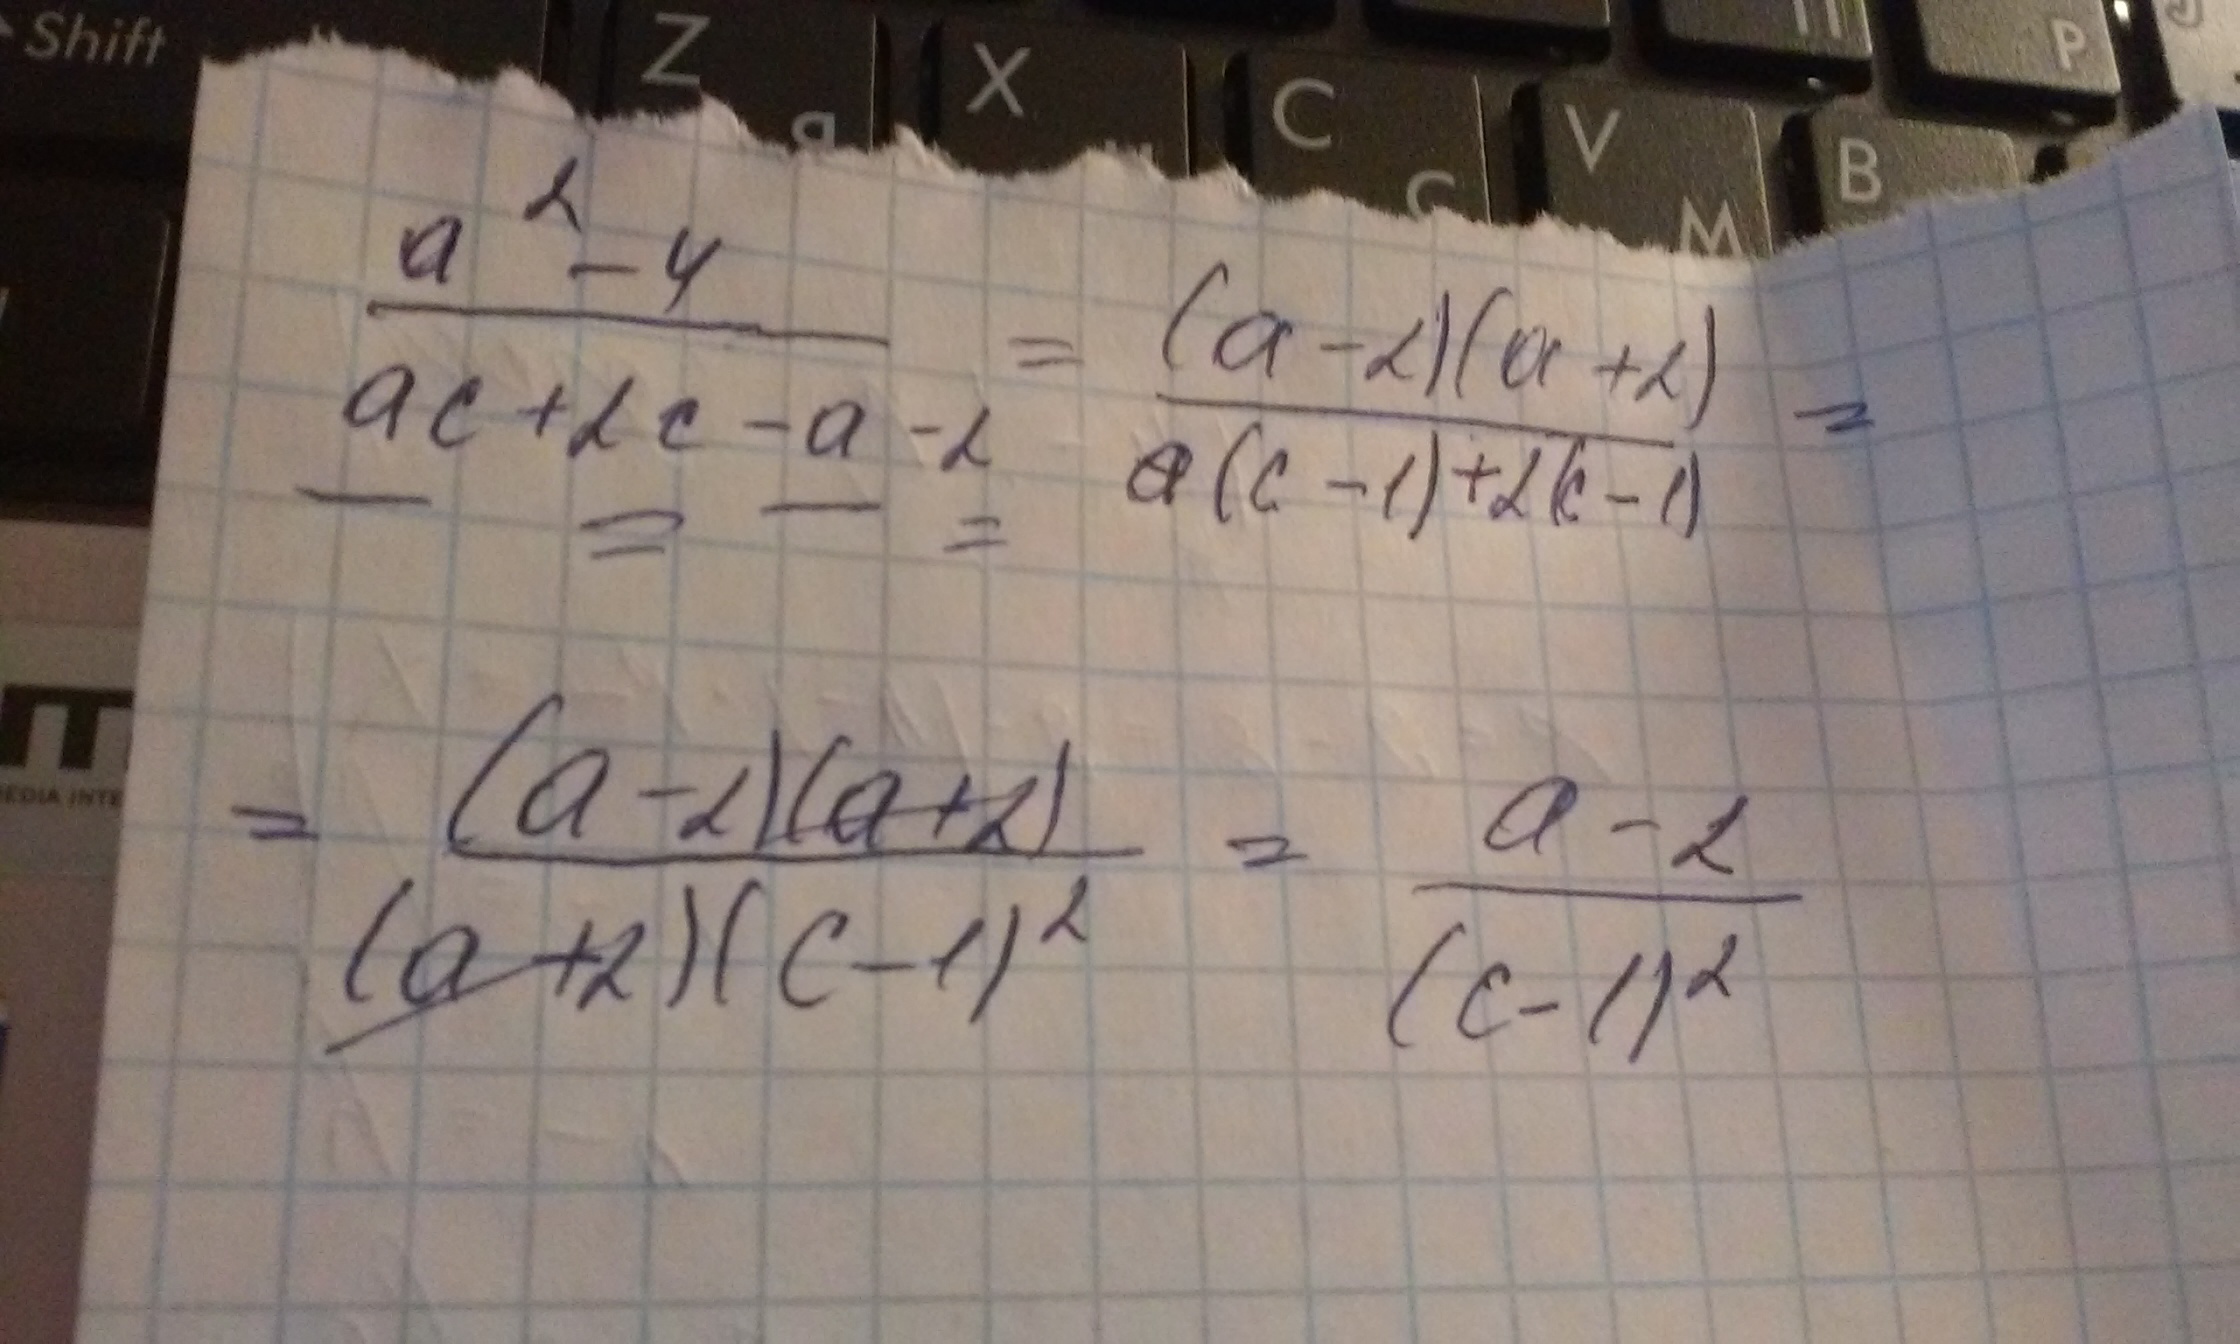 Shift Z X C V B P
я С М
a² - 4 / ac + 2c - a - 2 = (a - 2)(a + 2) / a(c - 1) + 2(c - 1) =
= (a - 2)(a + 2) / (a + 2)(c - 1)² = a - 2 / (c - 1)²